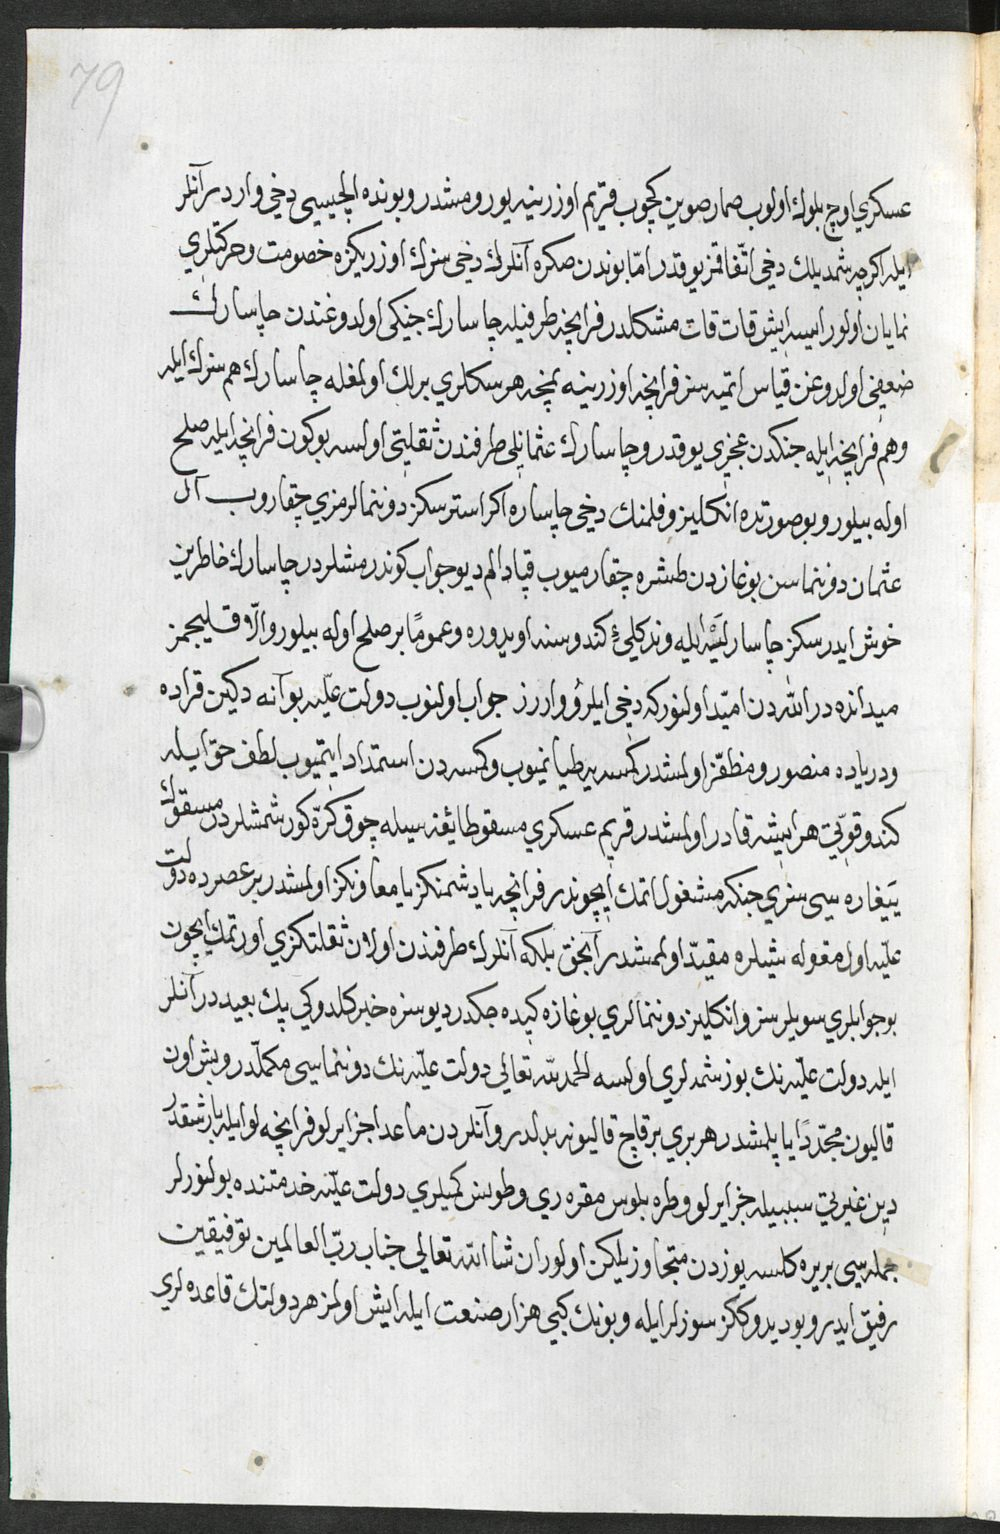 79
عسكري اوچ بلوك اولوب صمار صوين كچوب قريم اوزرينه يورومشدر وبونده ايلچيسى دخى واردر آنلر
ايله اكرچه شمديلك دخى اتّفاقمز يوقدر امّا بوندن صكره آنلرك دخى سزك اوزريكزه خصومت وحركتلري
نمايان اولور ايسه ايش قات قات مشكلدر فرانچه طرفيله چاسارك جنكى اولدوغندن چاسارك
ضعيفى اولدوغن قياس اتميه سز فرانچه اوزرينه نمچه هرسكلري برلك اولمغله چاسارك هم سزك ايله
وهم فرانچه ايله جنكدن عجزي يوقدر وچاسارك عثمانلى طرفندن ثقلتى اولسه بوكون فرانچه ايله صلح
اوله بيلور وبو صورتده انكليز وفلمنك دخى چاساره اكر استرسكز دوننمالرمزي چقاروب آل
عثمان دوننماسن بوغازدن طشره چقارميوب قپادالم ديو جواب كوندرمشلردر چاسارك خاطرين
خوش ايدرسكز چاسار ليه ايله ونديكلى كندوسنه اويدوره وعمومًا بر صلح اوله بيلور والّا قليجمز
ميدانده در اللّهدن اميّد اولنوركه دخى ايلرو وارز جواب اولنوب دولت عليّه بو آنه دكين قراده
ودرياده منصور ومظفّر اولمشدر كمسه يه طيانميوب وكمسه دن استمداد ايتميوب لطف حقّ ايله
كندو قوّتى هر ايشه قادر اولمشدر قريم عسكري مسقو طائفه سيله چوق كرّه كورشمشلردر مسقونك
يغاره سى سزي جنكه مشغول اتمك ايچوندر فرانچه يا دشمنكز يا معاونكز اولمشدر بر عصرده دولت
عليّه اول مقوله شيلره مقيّد اولمشدر آنجق بلكه آنلرك طرفندن اولان ثقلتكزي اورتمك ايچون
بو جوابلري سويلرسز وانكليز دوننمالري بوغازه كيده جكدر ديو سزه خبر كلدوكى پك بعيددر آنلر
ايله دولت عليّه نك بوزشمه لري اولسه الحمد للّه تعالى دولت عليّه نك دوننماسى مكمّلدر وبش اون
قاليون مجدّدًا ياپلمشدر هر بري بر قاچ قاليونه بدلدر وآنلردن ماعدا جزايرلو فرانچه لو ايله بارشقدر
دين غيرتى سببيله جزايرلو وطره بلوس مقرّه ري وطونس كميلري دولت عليّه خدمتنده بولنورلر
جمله سى بر يره كلسه يوزدن متجاوز يلكن اولور ان شا اللّه تعالى جناب ربّ العالمين توفيقين
رفيق ايدر وبو ديدوككز سوزلر ايله وبونك كبى هزار صنعت ايله ايش اولمز هر دولتك قاعده لري